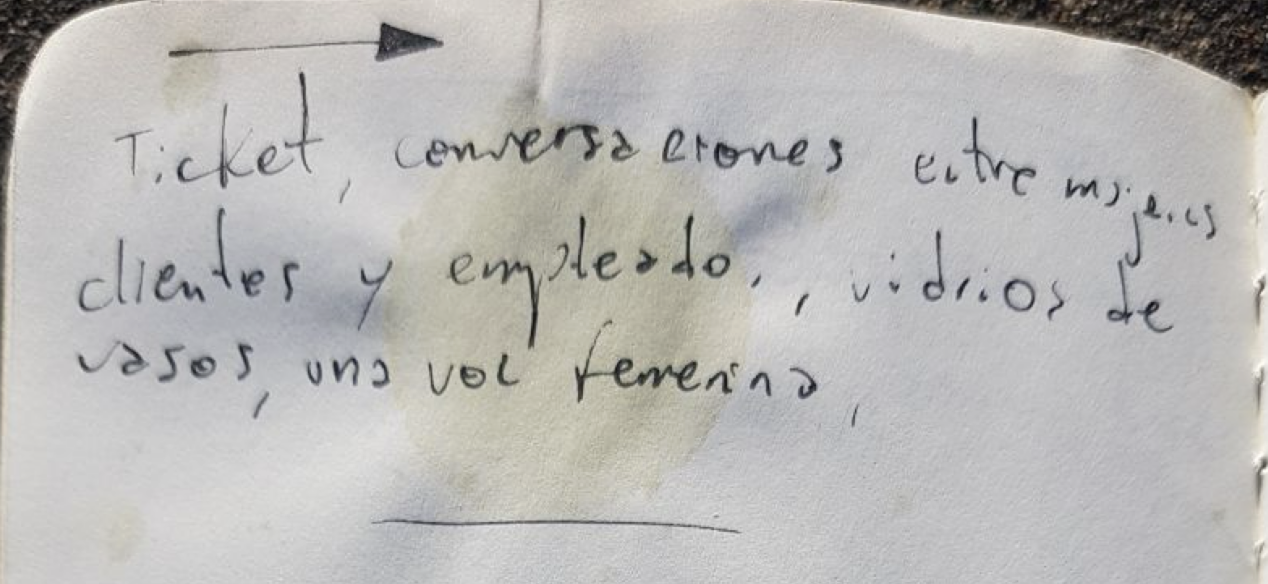 Ticket, conversaciones entre mujeres
clientes y empleado., vidrios de
vasos, una voz femenina,